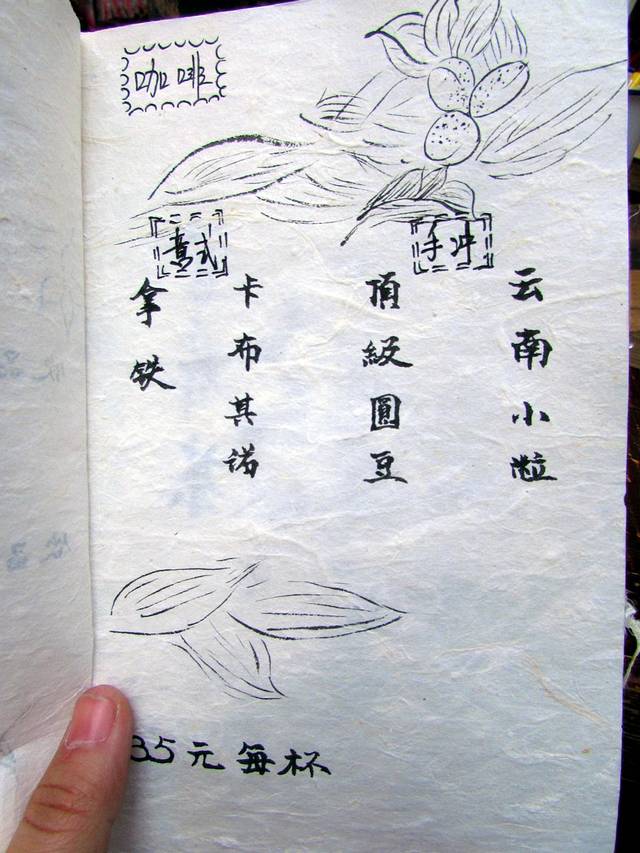 咖啡
意式
拿铁
卡布其诺
手冲
頂級圓豆
云南小粒
35元每杯